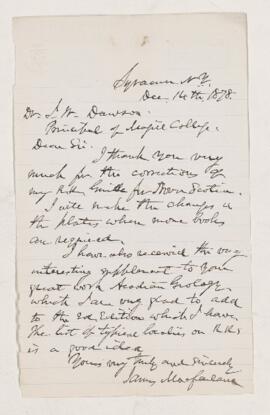 Syracuse N.Y.
Dec. 14th, 1878.
Dr. J. W. Dawson.
Principal of McGill College.
Dear Sir.
I thank you very
much for the corrections of
my R.R. Guide for Nova Scotia.
I will make the changes in
the plates when more books
are required.
I have also received the very
interesting supplement to your
great work Acadian Geology
which I am very glad to add
to the 2d. Edition which I have.
The list of typical localities on R.R.s
is a good idea.
Yours very truly and sincerely
James Macfarlane